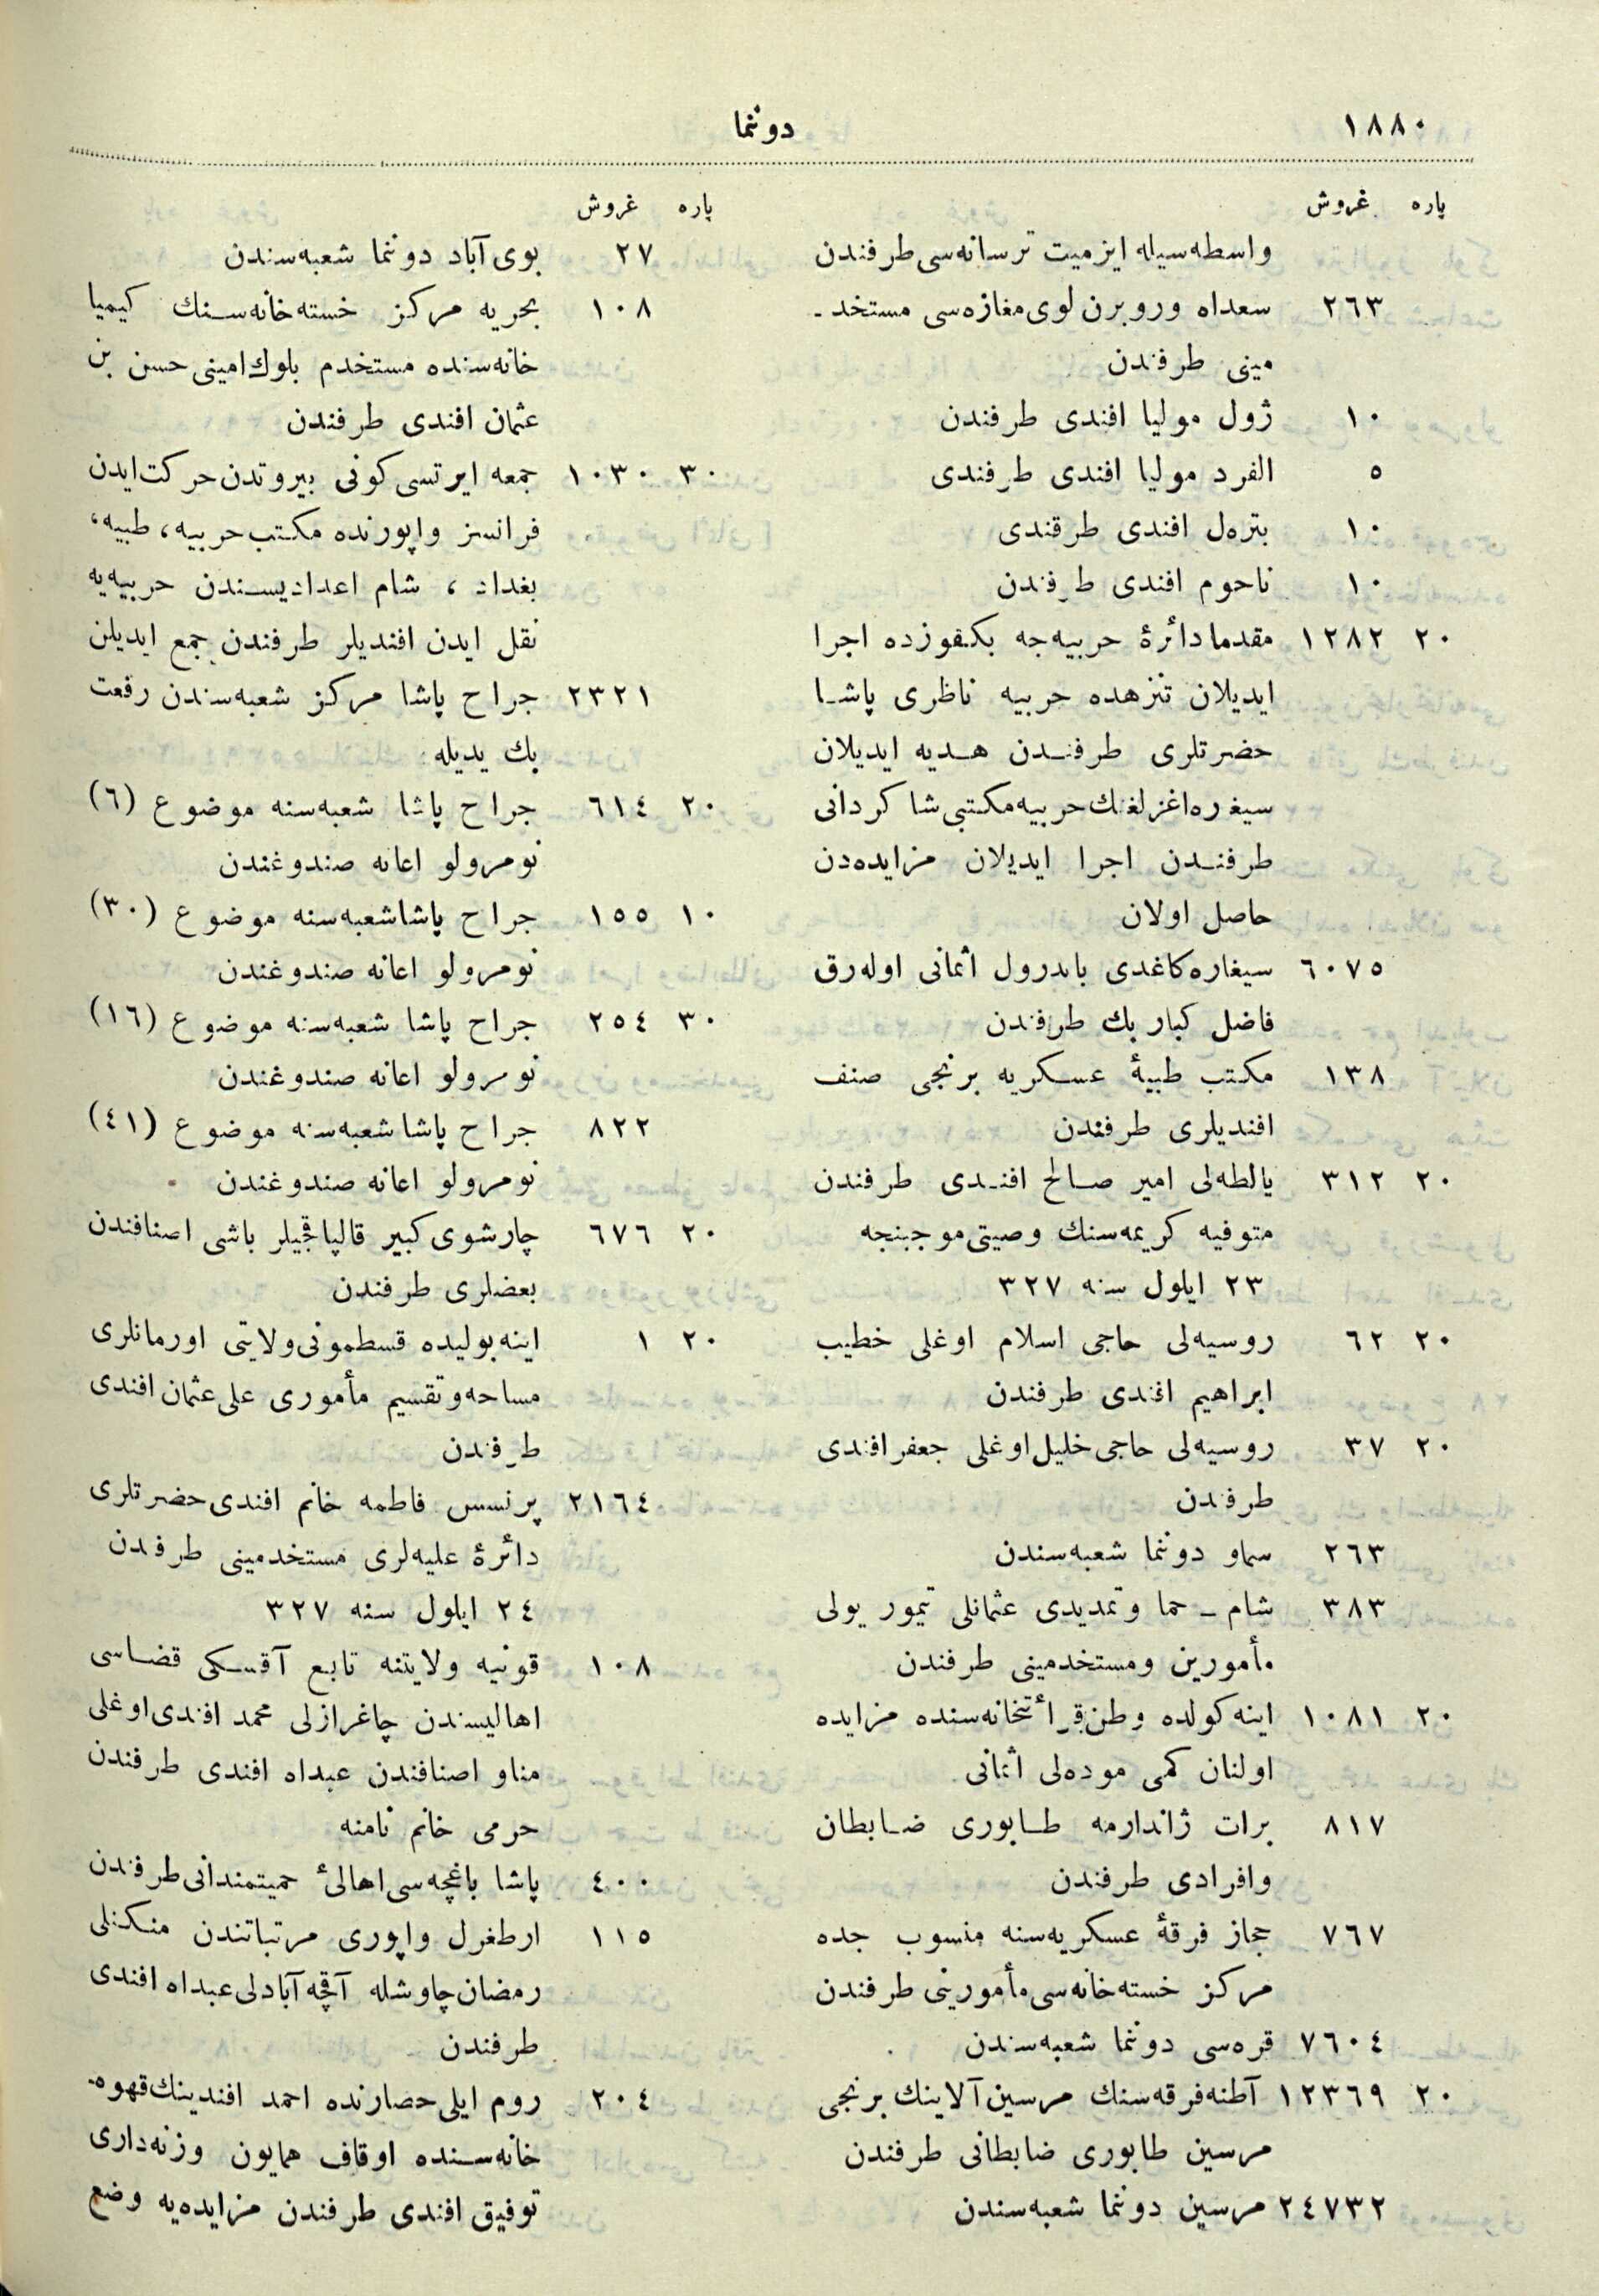 ١٨٨٠
دوننما
پاره غروش
واسطه‌سیله ایزمیت ترسانه‌سی طرفندن
٢٦٣ سعداه وروبرن لوی مغازه‌سی مستخد ـ
مینی طرفندن
١٠ ژول مولیا افندی طرفندن
٥ الفرد مولیا افندی طرفندی
١٠ بتره‌ل افندی طرقندی
١٠ ناحوم افندی طرفندن
٢٠ ١٢٨٢ مقدما دائرهٔ حربیه‌جه بكقوزده اجرا
ایدیلان تنزهده حربیه ناظری پاشا
حضرتلری طرفندن هدیه ایدیلان
سیغره‌اغزلغنك حربیه مكتبی شا كردانی
طرفندن اجرا ایدیلان مزایده‌دن
حاصل اولان
٦٠٧٥ سیغاره كاغدی باندرول اثمانی اوله‌رق
فاضل كبار بك طرفندن
١٣٨ مكتب طبیهٔ عسكریه برنجی صنف
افندیلری طرفندن
٢٠ ٣١٢ یالطه‌لی امیر صالح افندی طرفندن
متوفیه كریمه‌سنك وصیتی موجبنجه
٢٣ ایلول سنه ٣٢٧
٢٠ ٦٢ روسیه‌لی حاجی اسلام اوغلی خطیب
ابراهیم افندی طرفندن
٢٠ ٣٧ روسیه‌لی حاجی خلیل اوغلی جعفر افندی
طرفندن
٢٦٣ سماو دوننما شعبه‌سندن
٣٨٣ شام ـ حما وتمدیدی عثمانلی تیمور یولی
مأمورین ومستخدمینی طرفندن
٢٠ ١٠٨١ اینه كولده وطن قرأتخانه‌سنده مزایده
اولنان كمی موده‌لی اثمانی
٨١٧ برات ژاندارمه طابوری ضابطان
وافرادی طرفندن
٧٦٧ حجاز فرقهٔ عسكریه‌سنه منسوب جده
مركز خسته‌خانه‌سی مأمورینی طرفندن
٧٦٠٤ قره‌سی دوننما شعبه‌سندن
٢٠ ١٢٣٦٩ آطنه فرقه‌سنك مرسین آلاینك برنجی
مرسین طابوری ضابطانی طرفندن
٢٤٧٣٢ مرسین دوننما شعبه‌سندن
پاره غروش
٢٧ بوی آباد دوننما شعبه‌سندن
١٠٨ بحریه مركز خسته‌خانه‌سنك كیمیا
خانه‌سنده مستخدم بلوك امینی حسن بن
عثمان افندی طرفندن
٣٠ ١٠٣٠ جمعه ایرتسی كونی بیروتدن حركت ایدن
فرانسز واپورنده مكتب حربیه، طبیه،
بغداد ، شام اعدادیسندن حربیه‌یه
نقل ایدن افندیلر طرفندن جمع ایدیلن
٢٣٢١ جراح پاشا مركز شعبه‌سندن رفعت
بك یدیله
٢٠ ٦١٤ جراح پاشا شعبه‌سنه موضوع (٦)
نومرولو اعانه صندوغندن
١٠ ١٥٥ جراح پاشا شعبه‌سنه موضوع (٣٠)
نومرولو اعانه صندوغندن
٣٠ ٢٥٤ جراح پاشا شعبه‌سنه موضوع (١٦)
نومرولو اعانه صندوغندن
٨٢٢ جراح پاشا شعبه‌سنه موضوع (٤١)
نومرولو اعانه صندوغندن
٢٠ ٦٧٦ چارشوی كبیر قالپاقجیلر باشی اصنافندن
بعضلری طرفندن
٢٠ ١ اینه‌بولیده قسطمونی ولایتی اورمانلری
مساحه وتقسیم مأموری علی عثمان افندی
طرفندن
٢١٦٤ پرنسس فاطمه خانم افندی حضرتلری
دائرهٔ علیه‌لری مستخدمینی طرفدن
٢٤ ایلول سنه ٣٢٧
١٠٨ قونیه ولایتنه تابع آقسكی قضاسی
اهالیسندن چاغرازلی محمد افندی اوغلی
مناو اصنافندن عبداه افندی طرفندن
حرمی خانم نامنه
٤٠٠ پاشا باغچه‌سی اهالیٔ حمیتمندانی طرفندن
١١٥ ارطغرل واپوری مرتباتندن منكنلی
رمضان چاوشله آقچه‌آبادلی عبداه افندی
طرفندن
٢٠٤ روم ایلی حصارنده احمد افندینك قهوه‌
خانه‌سنده اوقاف همایون وزنه‌داری
توفیق افندی طرفندن مزایده‌یه وضع